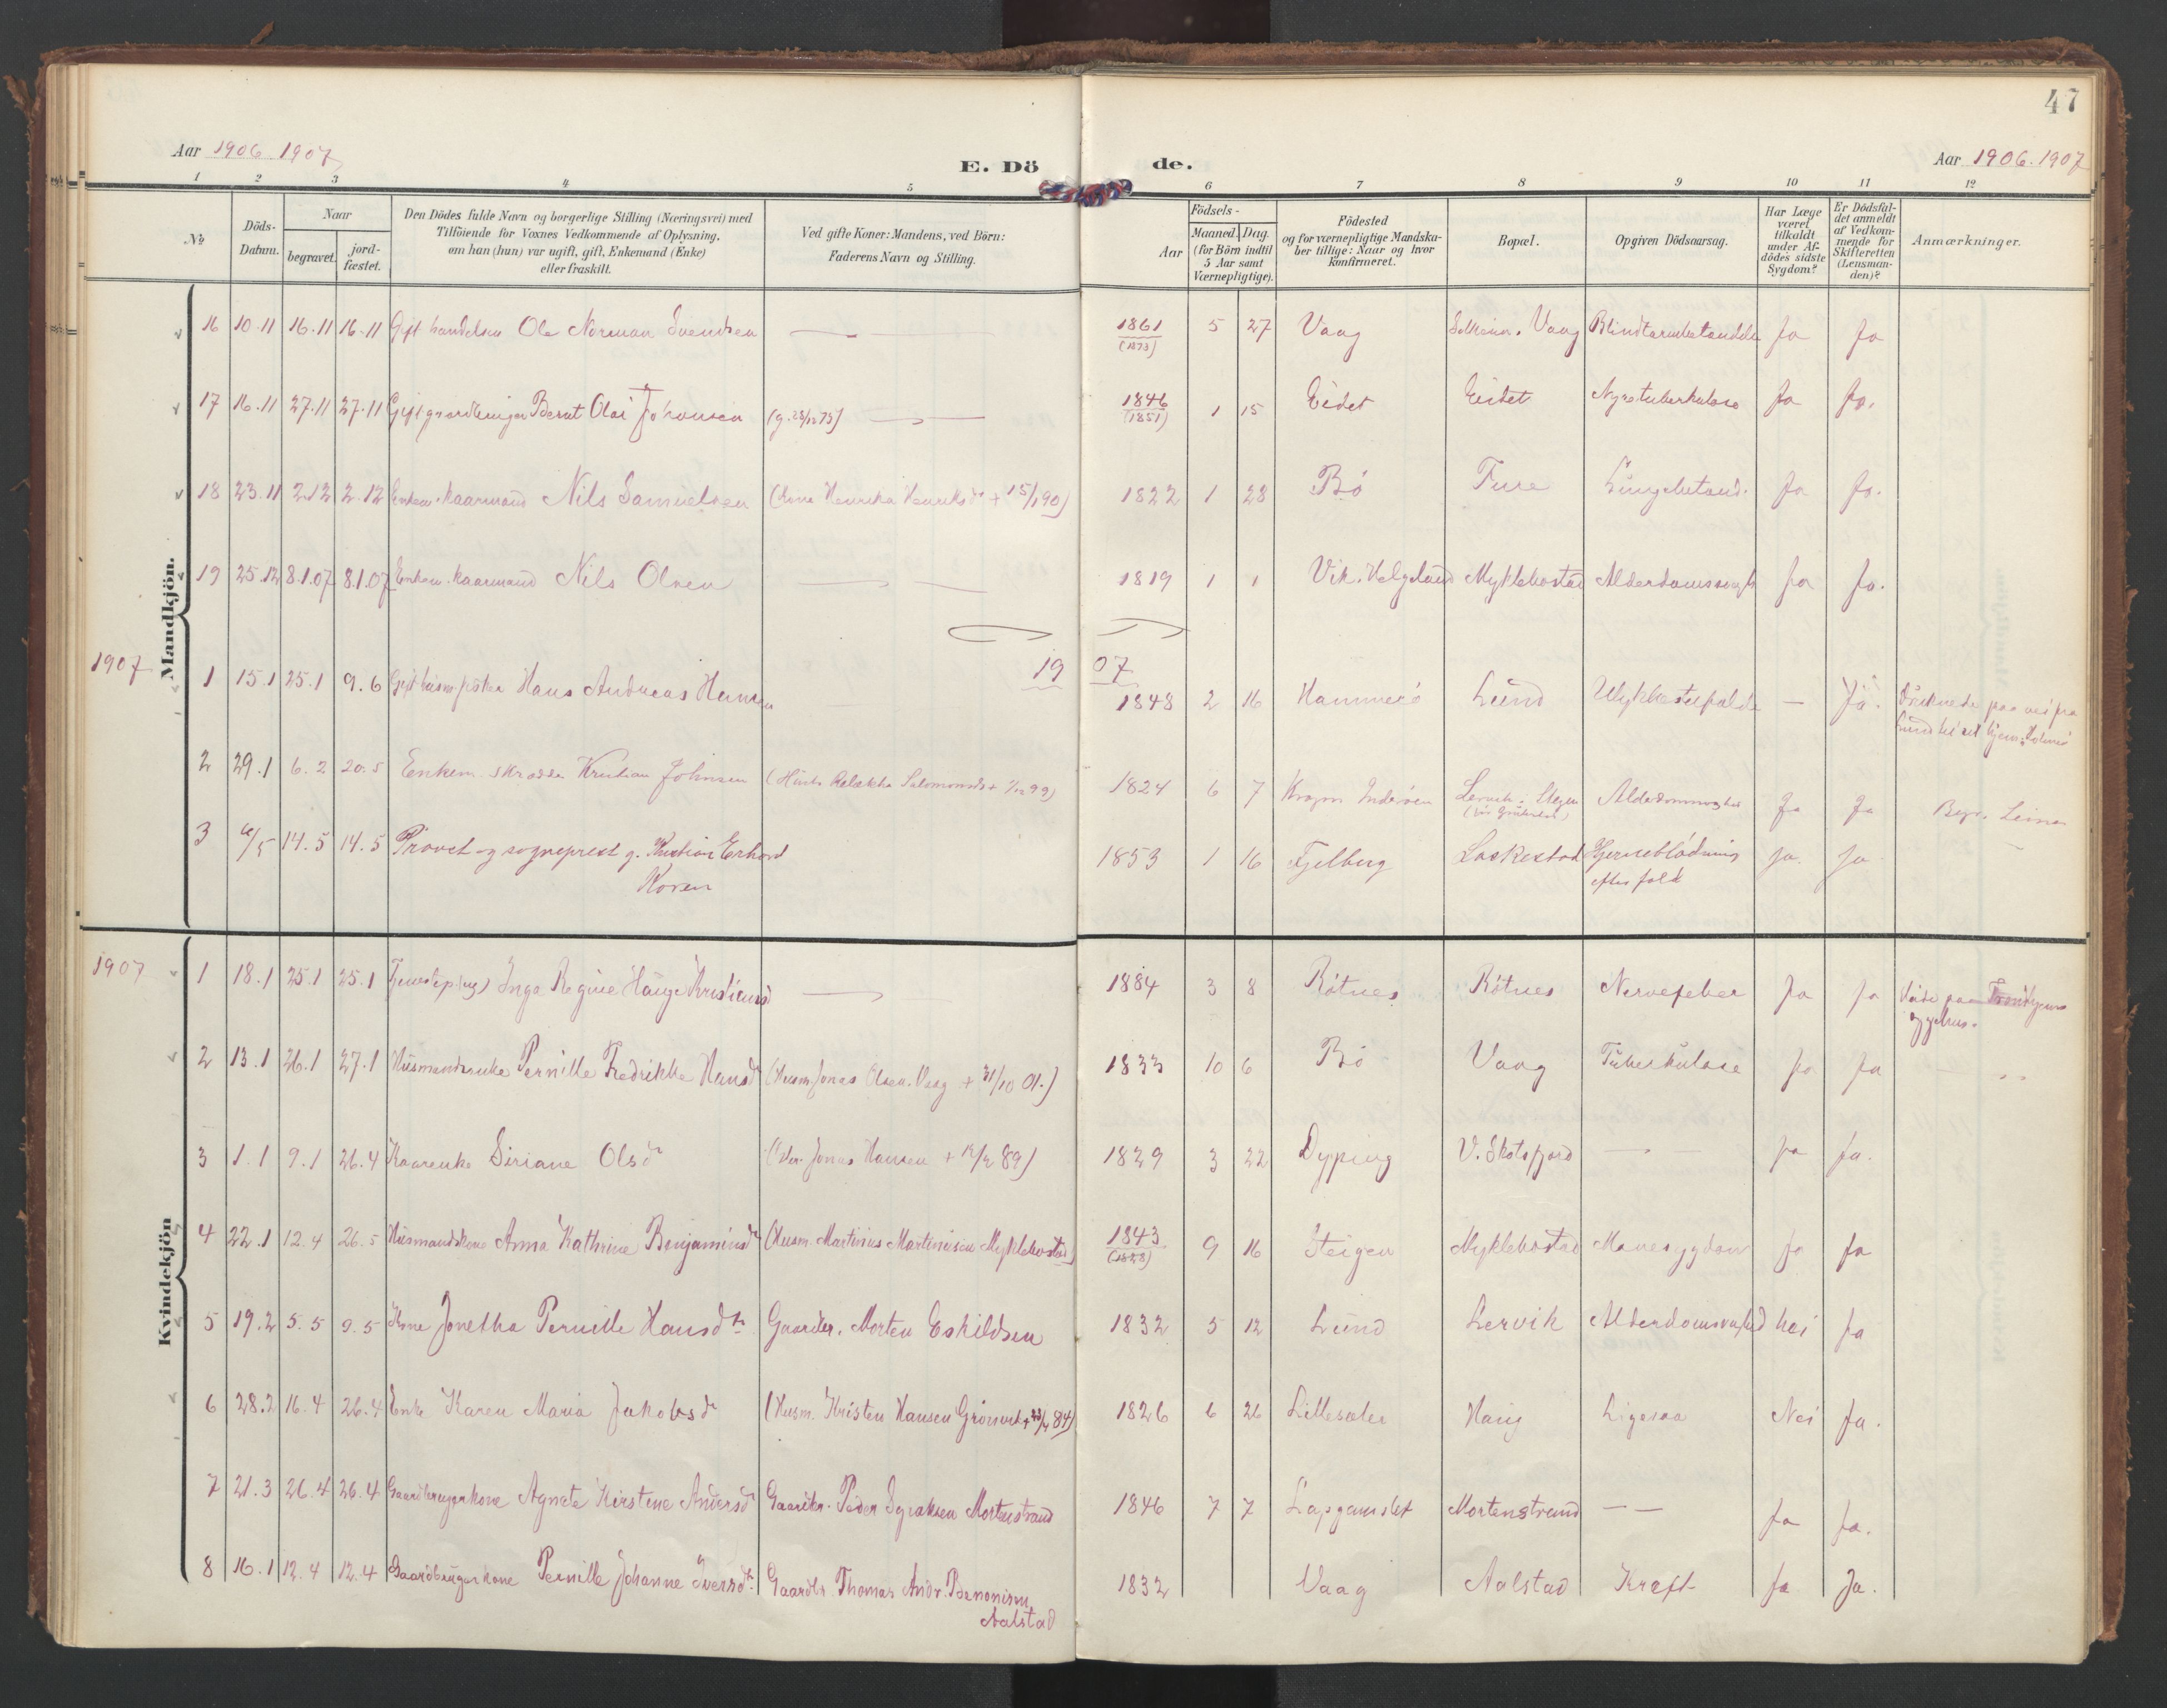 47
Aar 1906 1907
E. Dö
de.
Aar 1906.1907
1 2 3 4 5 6 7 8 9 10 11 12
№
Döds-Datum.
Naar
begravet.
jord-fæstet.
Den Dödes fulde Navn og borgerlige Stilling (Næringsvei) med
Tilföiende for Voxnes Vedkommende af Oplysning,
om han (hun) var ugift, gift, Enkemand (Enke)
eller fraskilt.
Ved gifte Koner: Mandens, ved Börn:
Faderens Navn og Stilling.
Födsels-
Aar
Maaned. Dag.
(for Börn indtil
5 Aar samt
Værnepligtige).
Födested
og for værnepligtige Mandska-
ber tillige: Naar og hvor
konfirmeret.
Bopæl.
Opgiven Dödsaarsag.
Har Læge
været
tilkaldt
under Af-
dödes sidste
Sygdom?
Er Dödsfal-
det anmeldt
af Vedkom-
mende for
Skifteretten
(Lensman-
den)?
Anmærkninger.
Mandkjön.
16 10.11 16.11 16.11 Gift Ole Norman Svendsen — 1861 5 27 Vaag Vaag Ja Ja
(1873)
17 16.11 27.11 27.11 Gift gaardbruger Bernt Olai Johansen — 1846 1 15 Eidet Eidet Ja Ja.
(1851)
18 23.11 2.12 2.12 Enkem. kaarmand Nils Samuelsen (Kone Henrika Henriksdr + 1822 1 28 Bö Fure Ja Ja.
19 25.12 8.1.07 8.1.07 Enkem. kaarmand Nils Olsen — 1819 1 1 Vik. Helgeland Myklebostad Ja Ja.
1907
19 07
1 15.1 25.1 9.6 Gift Hans Andreas Hansen 1848 2 16 Hammerö Lund Ulykkestilfælde — Ja. Druknede paa vei fra
Lund til sit hjem
2 29.1 6.2 20.5 Enkem. skrædder Kristian Johnsen 1824 6 7 Inderöen Ja Ja Begr. Leines
3 6/5 14.5 14.5 Provst og sogneprest g. Kristian Erhard
Koren
1853 1 16 Fjelberg Laskestad Hjerneblödning
efter fald
Ja. Ja
Kvindekjön
1907
1 18.1 25.1 25.1 Inga Regine Hauge Kristiansd — 1884 3 8 Rötnes Rötnes Nervefeber Ja Ja Döde paa Trondhjems
sygehus.
2 13.1 26.1 27.1 Husmandsenke Pernille Fredrikke Hansdr (Husm. Jonas Olsen. Vaag + 31/10 01.) 1833 10 6 Bö Vaag Tuberkulose Ja Ja
3 1.1 9.1 26.4 Kaarenke Siriane Olsdr Jonas Hansen + 89) 1829 3 22 Dyping V. Skotsfjord — Ja Ja.
4 22.1 12.4 26.5 Husmandskone Anna Kathrine Benjaminsdr (Husm. Martinus Martinusen Myklebostad) 1843 9 16 Steigen Myklebostad Mavesygdom Ja Ja
5 19.2 5.5 9.5 Kone Jonetha Pernille Hansdtr Gaardbr. Morten Eskildsen 1832 5 12 Lund Lervik Nei Ja
6 28.2 16.4 26.4 Enke Karen Maria Jakobsdr (Husm. Kristen Hansen 84) 1826 6 26 Haug Ligesaa Nei Ja.
7 21.3 26.4 26.4 Gaardbrugerkone Agnete Kirstine Andersdr Gaardbr. Peder Mortenstrand 1846 7 7 Mortenstrand — Ja Ja.
8 16.1 12.4 12.4 Gaardbrugerkone Pernille Johanne Iversdtr. Gaardbr. Thomas Andr. Benonisen
Aalstad
1832 Vaag Aalstad Kræft Ja Ja.